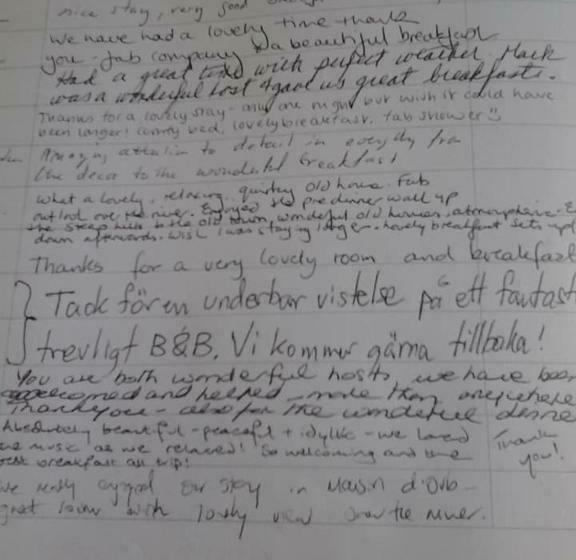 nice stay, very good
We have had a lovely time thanks
you - fab company & a beautiful breakfast
Had a great time with perfect weather. Mark
was a wonderful host & gave us great breakfasts.
Thanks for a lovely stay - only one night but wish it could have
been longer! comfy bed, lovely breakfast. fab shower
Amazing attention to detail in everything from
the decor to the wonderful breakfast
What a lovely, relaxing, quirky old house. Fab
outlook over the river. Enjoyed the pre dinner walk up
the steep hills to the old town, wonderful old houses, atmosphere.
down afterwards. wish I was staying longer. Lovely breakfast sets up
Thanks for a very lovely room and breakfast
Tack för en underbar vistelse på ett fantast
trevligt B&B. Vi kommer gärna tillbaka!
You are both wonderful hosts we have been
welcomed and helped more than anywhere
Thankyou - also for the wonderful dinner
Absolutely beautiful - peaceful + idyllic - we loved
the music as we relaxed! So welcoming and the
best breakfast all trip!
Thank
you!
We really enjoyed our stay in
great room with lovely view over the river.